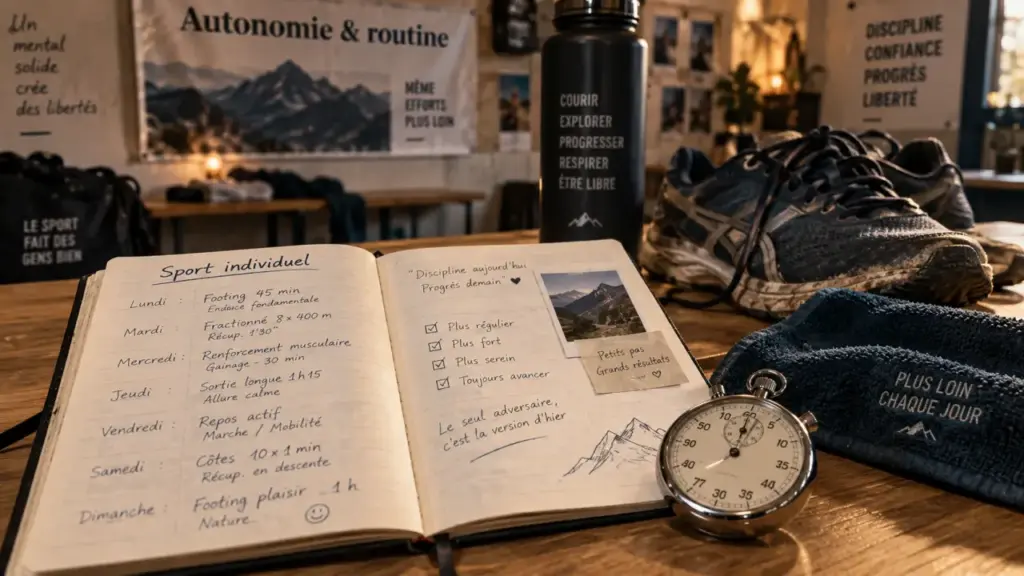 Un
mental
solide
crée
des libertés
Autonomie & routine
MÊME
EFFORTS
PLUS LOIN
DISCIPLINE
CONFIANCE
PROGRÉS
LIBERTÉ
COURIR
EXPLORER
PROGRESSER
RESPIRER
ÊTRE LIBRE
LE SPORT
FAIT DES
GENS BIEN
Sport individuel
Lundi : Footing 45 min
Endace fondamentale
Mardi : Fractionné 8 x 400 m
Récup. 1'30"
Mercredi : Renforcement musculaire
Gainage - 30 min
Jeudi : Sortie longue 1h15
Allure calme
Vendredi : Repos actif
Marche / Mobilité
Samedi : Côtes 10 x 1 min
Récup. en descente
Dimanche : Footing plaisir _ 1 h
Nature
"Discipline aujourd'hui
Progrés demain" ♥
☑ Plus régulier
☑ Plus fort
☑ Plus serein
☑ Toujours avancer
Petits pas
Grands résultats
♡
Le seul adversaire,
c'est la version d'hier
PLUS LOIN
CHAQUE JOUR